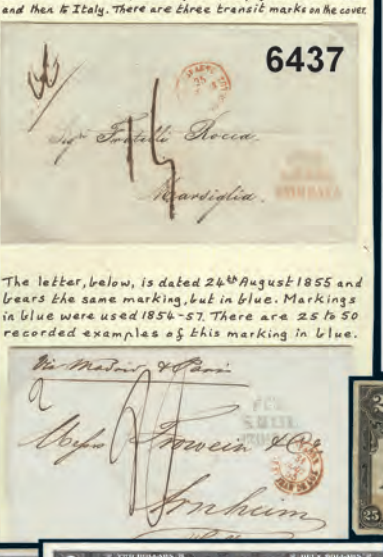 and then to Italy. There are three transit marks on the cover
6437
Fratelli Rocca
Marsiglia
The letter, below, is dated 24th August 1855 and
bears the same marking, but in blue. Markings
in blue were used 1854-57. There are 25 to 50
recorded examples of this marking in blue.
Via Madrid & Paris
Messrs Frowein & Co
Arnheim
25